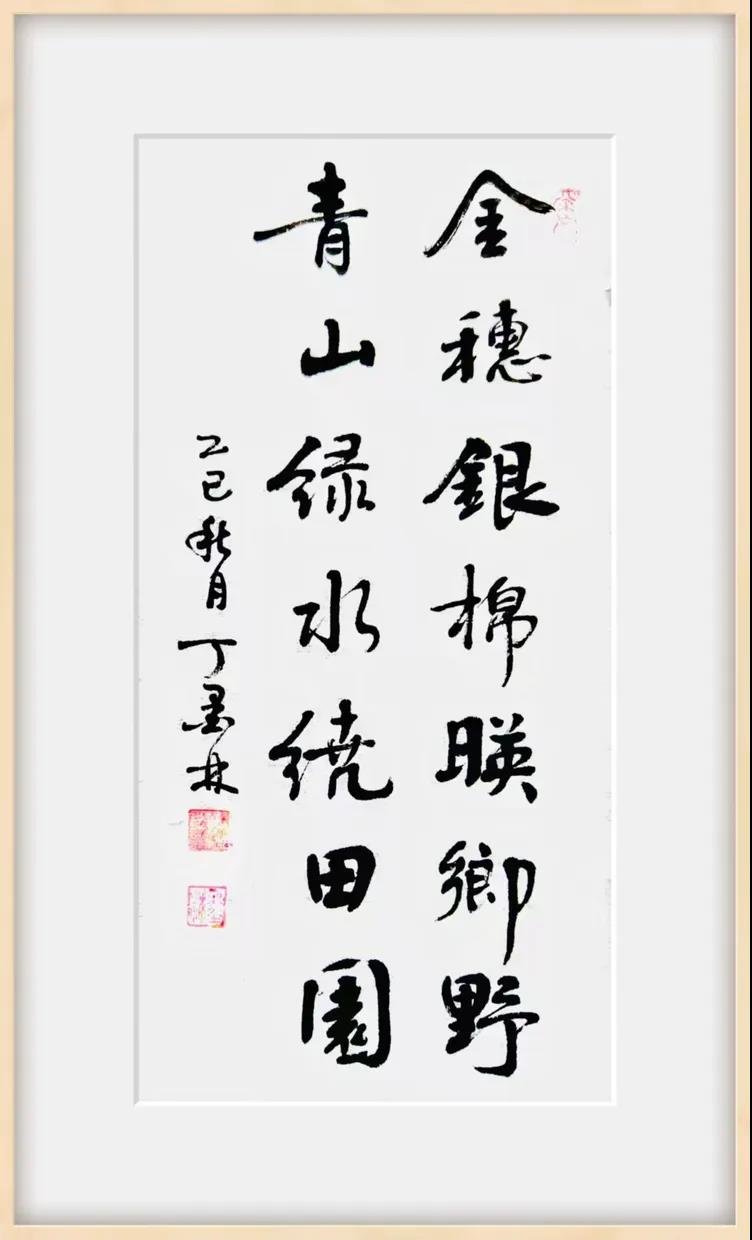 金穗銀棉暎鄉野
青山绿水绕田園
乙巳秋月丁墨林